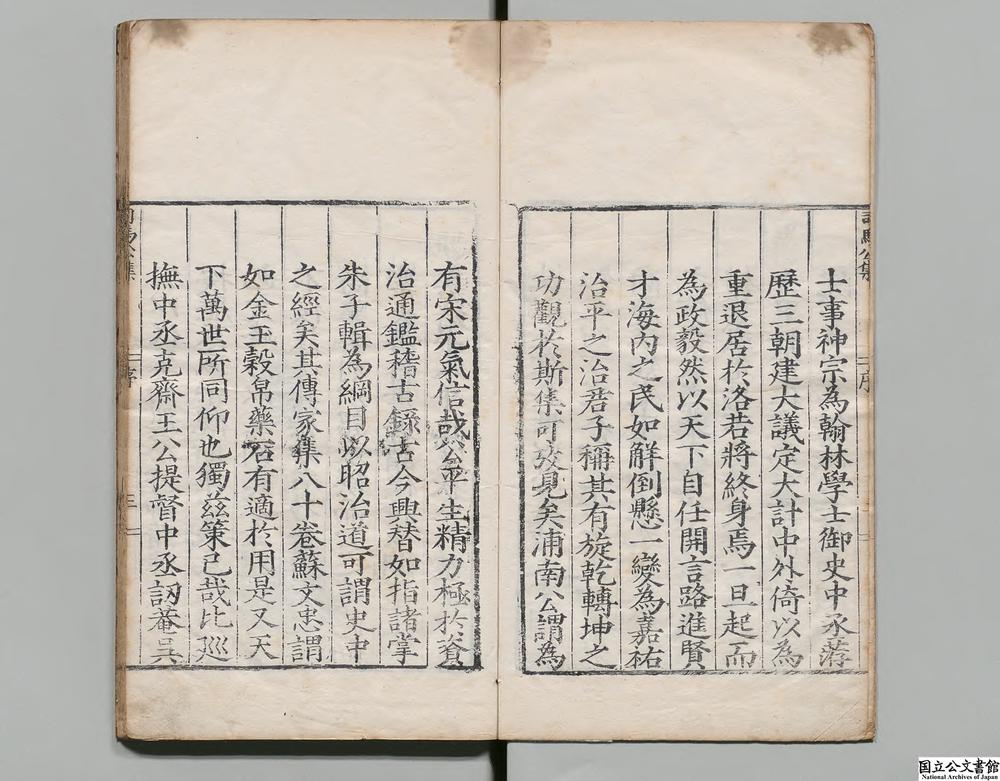 司馬公集
序
士事神宗為翰林學士御史中丞薦
歷三朝建大議定大計中外倚以為
重退居於洛若將終身焉一旦起而
為政毅然以天下自任開言路進賢
才海內之民如解倒懸一變為嘉祐
治平之治君子稱其有旋乾轉坤之
功觀於斯集可攷見矣浦南公謂為
有宋元氣信哉公平生精力極於資
治通鑑稽古錄古今興替如指諸掌
朱子輯為綱目以昭治道可謂史中
之經矣其傳家集八十卷蘇文忠謂
如金玉穀帛藥石有適於用是又天
下萬世所同仰也獨兹策已哉比巡
撫中丞克齋王公提督中丞訒菴吳
司馬公集
序
三
国立公文書館
National Archives of Japan